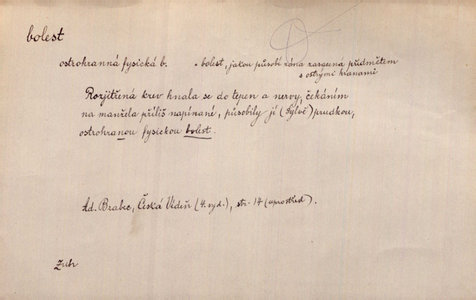 bolest
ostrohranná fysická b. = bolest, jakou působí rána zasazená předmětem
s ostrými hranami
Rozjitřená krev hnala se do tepen a nervy, čekáním
na manžela příliš napínané, působily jí (Sylvě) prudkou,
ostrohranou fysickou bolest.
Ad. Brabec, Česká Vídeň (4. vyd.), str. 17 (uprostřed).
Zubr